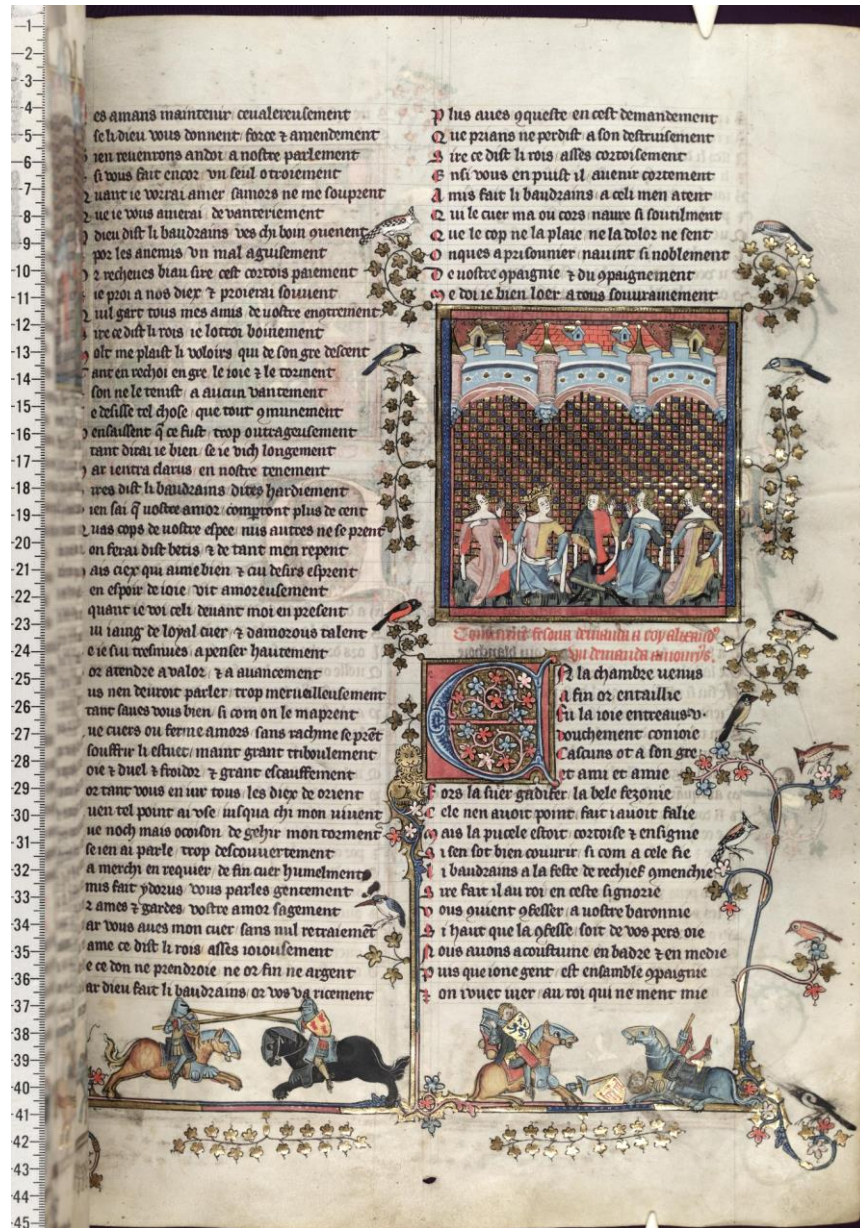 es amans maintenir cevalereusement
se li dieu vous donnent force ⁊ amendement
ien revenrons andoi a nostre parlement
si vous fait encor vn seul otroiement
uant ie vorrai amer samors ne me souprent
ue ie vous amerai de vanteriement
dieu dist li baudrains ves chi boin quenent
por les anemis vn mal aguisement
r recheues biau sire cest cortois paiement
ie proi a nos diex ⁊ proierai souuent
uil gart tous mes amis de uostre
ire ce dist li rois ie lottroi boinement
olt me plaist li voloirs qui de son gre descent
ant en rechoi en gre le ioie ⁊ le torment
son ne le tenist a aucun vantement
e desisse tel chose que tout 9munement
ensaissent q̄ ce fust trop outrageusement
tant dirai ie bien se ie vich longement
ar ientra clarus en nostre tenement
ires dist li baudrains dites hardiement
ien sai q̄ uostre amor compront plus de cent
uas cops de uostre espee nus autres ne se prent
on ferai dist betis ⁊ de tant men repent
ais ciex qui aime bien ⁊ cui desirs esprent
en espoir de ioie vit amoreusement
quant ie voi celi deuant moi en present
ui iaing de loyal cuer ⁊ damorous talent
e ie sui tresmues a penser hautement
or atendre a valor ⁊ a auancement
us nen deuroit parler trop merueilleusement
tant saues vous bien si com on le maprent
ue cuers ou ferme amors sans rachine se prēt
souffrir li estuet maint grant triboulement
oie ⁊ duel ⁊ froidor ⁊ grant escauffement
or tant vous en iur tous les diex de orient
uen tel point ai vse iusqua chi mon uiuent
ue noch mais ocoison de gehir mon torment
se ien ai parle trop descouuertement
a merchi en requier de fin cuer humelment
mis fait ydorus vous parles gentement
r ames ⁊ gardes vostre amor sagement
ar vous aues mon cuer sans nul retraiemēt
ame ce dist li rois asses ioiousement
e ce don ne prendroie ne or fin ne argent
ar dieu fait li baudrains or vos va ricement
Plus aues 9queste en cest demandement
Que prians ne perdist a son destruisement
Sire ce dist li rois asses cortoisement
Ensi vous en puist il auenir cortement
Amis fait li baudrains a celi men atent
Qui le cuer ma ou cors naure si soutilment
Que le cop ne la plaie ne la dolor ne sent
Onques a prisonnier nauint si noblement
De uostre 9paignie ⁊ du 9paignement
Me doi ie bien loer a tous souurainement
fesona demanda a roy
demanda
EN la chambre uenus
a fin or entaillie
Fu la ioie entreaus
douchement comoie
Cascuns ot a son gre
et ami et amie
Fors la suer gadifer la bele fezonie
Cele nen auoit point fait i auoit falie
Mais la pucele estoit cortoise ⁊ ensignie
Si sen sot bien couurir si com a cele fie
Li baudrains a la feste de rechief 9menchie
Sire fait il au roi en ceste signorie
Vous 9uient 9fesser a uostre baronnie
Si haut que la 9fesse soit de vos pers oie
Nous auons acoustume en badre ⁊ en medie
Puis que ione gent est ensamble 9paignie
⁊ on iouet iuer au roi qui ne ment mie